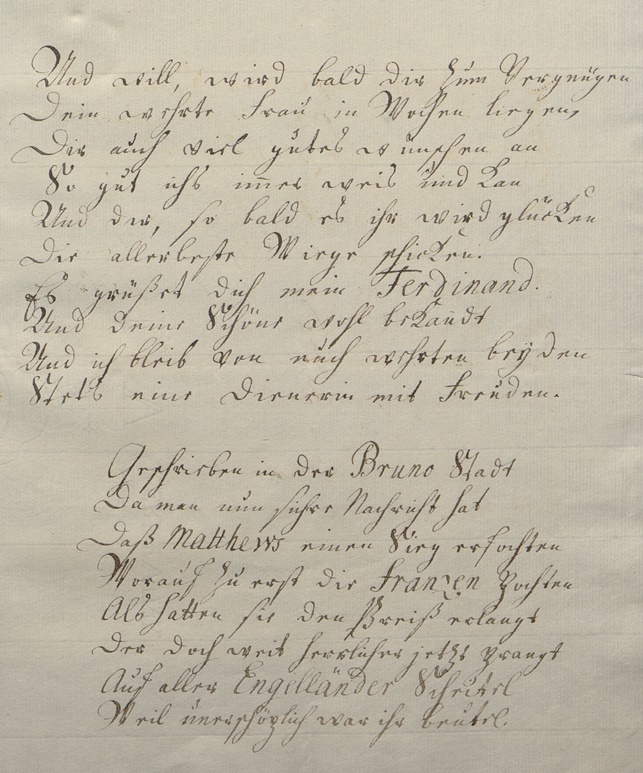 Und will, wird bald dir zum Vergnügen
Dein wehrte Frau in Wochen liegen,
Dir auch viel gutes wünschen an
So gut ichs immer weis und kan
Und der, so bald es ihr wird glücken
Die allerbeste Wiege schicken.
Es grüßet dich mein Ferdinand.
Und deine Schöne wohl bekandt
Und ich bleib von euch wehrten beyden
Stets eine Dienerin mit Freuden.
Geschrieben in der Bruno Stadt
Da man nun sichre Nachricht hat
Daß Matthews einen Sieg erfochten
Worauf zu erst die Franzen pochten
Als hatten sie den Preiß erlangt
Der doch weit herrlicher jetzt prangt
Auf aller Engelländer Scheitel
Weil unerschöpflich war ihr beutel.